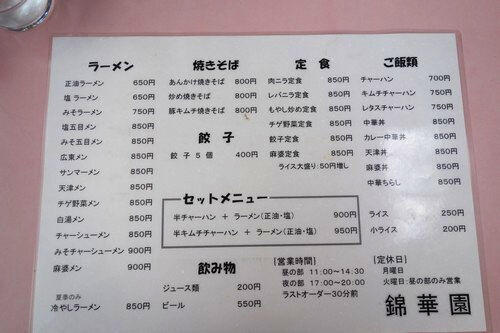 ラーメン
正油ラーメン 650円
塩 ラーメン 650円
みそラーメン 750円
塩五目メン 850円
みそ五目メン 850円
広東メン 850円
サンマーメン 850円
天津メン 850円
チゲ野菜メン 850円
白湯メン 850円
チャーシューメン 850円
みそチャーシューメン 900円
麻婆メン 900円
夏季のみ
冷やしラーメン 850円
焼きそば
あんかけ焼きそば 800円
炒め焼きそば 800円
豚キムチ焼きそば 800円
餃子
餃 子 5 個 400円
定食
肉ニラ定食 850円
レバニラ定食 850円
もやし炒め定食 850円
チゲ野菜定食 850円
餃子定食 850円
麻婆定食 850円
ライス大盛り:50円増し
ご飯類
チャーハン 700円
キムチチャーハン 750円
レタスチャーハン 750円
中華丼 850円
カレー中華丼 850円
天津丼 850円
麻婆丼 850円
中華ちらし 850円
ライス 250円
小ライス 200円
セットメニュー
半チャーハン + ラーメン(正油・塩) 900円
半キムチチャーハン + ラーメン(正油・塩) 950円
飲み物
ジュース類 200円
ビール 550円
[営業時間]
昼の部 11:00～14:30
夜の部 17:00～20:00
ラストオーダー30分前
[定休日]
月曜日
火曜日:昼の部のみ営業
錦華園